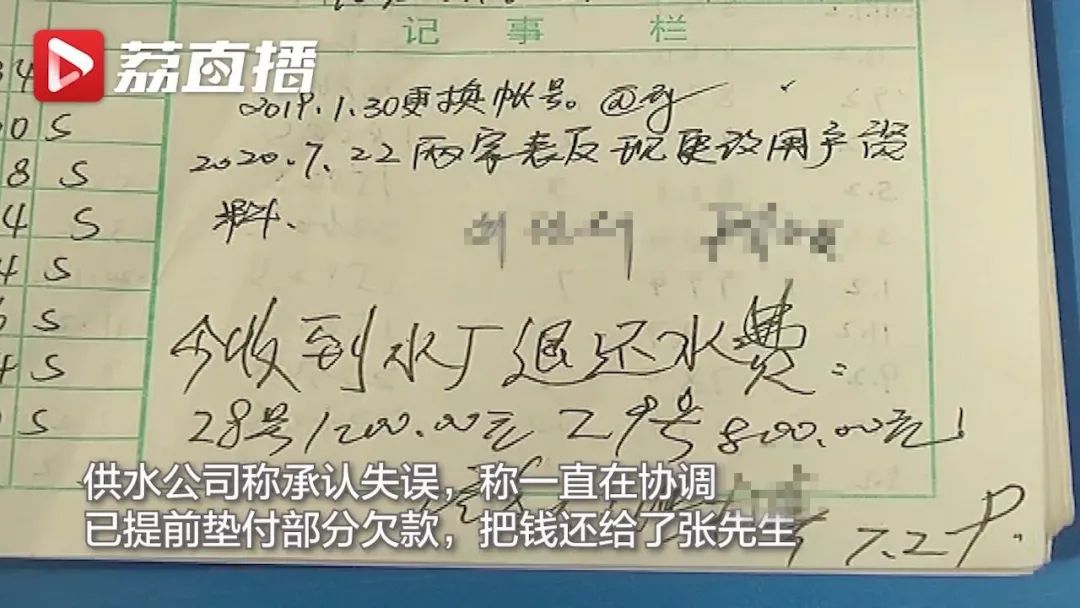 荔直播
记事栏
34
0 S
8 S
4 S
4 S
S
4 S
S
2019.1.30更换帐号。
2020.7.22两家表反现更改用户资
料、
今收到水厂退还水费:
28号1200.00元 29号800.00元!
供水公司称承认失误，称一直在协调
已提前垫付部分欠款，把钱还给了张先生
7.29.